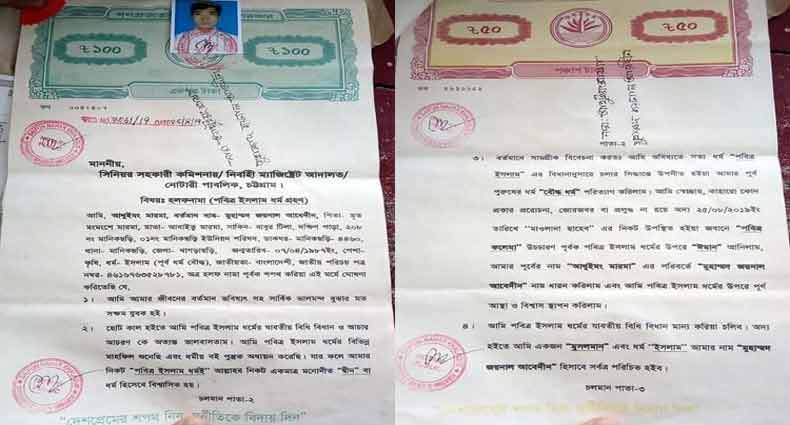 ৳১০০
৳১০০
একশত টাকা
মাননীয়,
সিনিয়র সহকারী কমিশনার/ নির্বাহী ম্যাজিষ্ট্রেট আদালত/
নোটারী পাবলিক, চট্টগ্রাম।
বিষয়ঃ হলফনামা (পবিত্র ইসলাম ধর্ম গ্রহণ)
আমি, আথুইমং মারমা, বর্তমান নাম- মুহাম্মদ জয়নাল আবেদীন, পিতা- মৃত
মংমংশে মারমা, মাতা- আবাইমা মারমা, সাকিন- বাবুর টিলা, দক্ষিণ পাড়া, ২০৮
নং মানিকছড়ি, ০১নং মানিকছড়ি ইউনিয়ন পরিষদ, ডাকঘর- মানিকছড়ি- ৪৪৬০,
থানা- মানিকছড়ি, জেলা- খাগড়াছড়ি, জন্মতারিখ- ০৭/০৪/১৯৮৭ইং, পেশা-
কৃষি, ধর্ম- ইসলাম (পূর্ব ধর্ম বৌদ্ধ), জাতীয়তা- বাংলাদেশী, জাতীয় পরিচয় পত্র
নম্বর- ৪৬১৬৭৬৩৫২৮৭৮১, অত্র হলফ নামা পূর্বক শপথ করিয়া এই মর্মে ঘোষণা
করিতেছি যে,
১। আমি আমার জীবনের বর্তমান ভবিষ্যৎ সহ সার্বিক ভালমন্দ বুঝার মত
সক্ষম যুবক হই।
২। ছোট কাল হইতে আমি পবিত্র ইসলাম ধর্মের যাবতীয় বিধি বিধান ও আচার
আচরণ কে অত্যন্ত ভালবাসতাম। আমি পবিত্র ইসলাম ধর্মের বিভিন্ন
মাহফিল শুনেছি এবং ধর্মীয় বই পুস্তক অধ্যয়ন করেছি। যার ফলে আমার
নিকট "পবিত্র ইসলাম ধর্মই" আল্লাহর নিকট একমাত্র মনোনীত "দ্বীন" বা
ধর্ম হিসেবে বিশ্বাসিত হয়।
চলমান পাতা-২
"দেশপ্রেমের শপথ নিন, দুর্নীতিকে বিদায় দিন"
৳৫০
৳৫০
পঞ্চাশ টাকা
পাতা-২
৩। বর্তমানে সামগ্রীক বিবেচনা করতঃ আমি অবিলম্বে সত্য ধর্ম "পবিত্র
ইসলাম" এর বিধানানুসারে চলার সিদ্ধান্তে উপনীত হইয়া আমার পূর্ব
পুরুষের ধর্ম "বৌদ্ধ ধর্ম" পরিত্যাগ করিলাম। আমি স্বেচ্ছায়, কাহারো কোন
প্রকার প্ররোচনা, জোরজবর বা প্রলুব্ধ না হয়ে অদ্য ২৫/০৬/২০১৯ইং
তারিখে "মাওলানা ছাহেব" এর নিকট উপস্থিত হইয়া জবানে "পবিত্র
কলেমা" উচ্চারণ পূর্বক পবিত্র ইসলাম ধর্মের উপরে "ঈমান" আনিলাম,
আমার পূর্বের নাম "আথুইমং মারমা" এর পরিবর্তে "মুহাম্মদ জয়নাল
আবেদীন" নাম ধারন করিলাম এবং আমি পবিত্র ইসলাম ধর্মের উপরে পূর্ণ
আস্থা ও বিশ্বাস স্থাপন করিলাম।
৪। আমি পবিত্র ইসলাম ধর্মের যাবতীয় বিধি বিধান মান্য করিয়া চলিব। অদ্য
হইতে আমি একজন "মুসলমান" এবং ধর্ম "ইসলাম" আমার নাম "মুহাম্মদ
জয়নাল আবেদীন" হিসাবে সর্বত্র পরিচিত হইব।
চলমান পাতা-৩